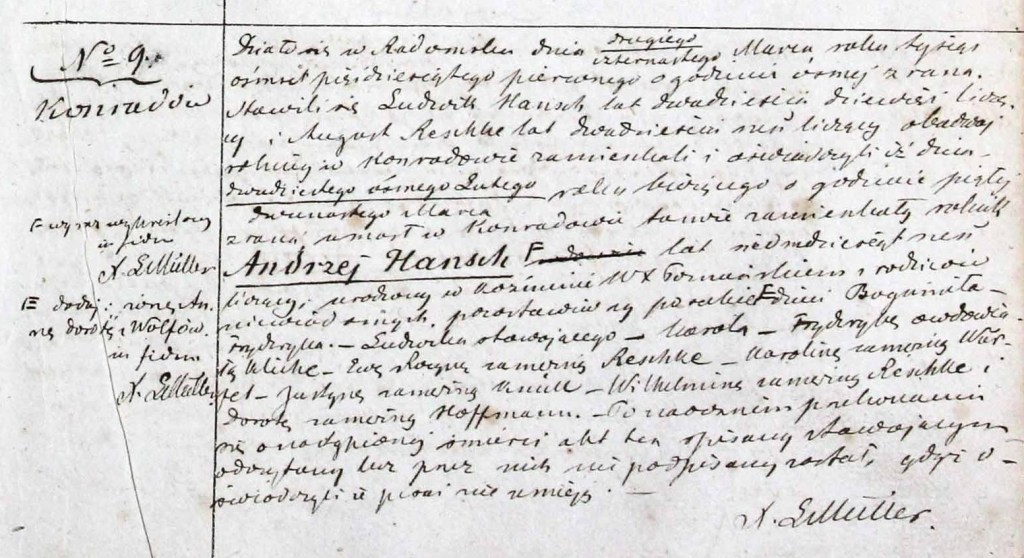 No 9.
Konradów
F wyraz wykreślony
in fidem
X. E. Müller
E dodaj: żonę An-
nę dorotę z Wolfów,
in fidem
X. E. Müller
Działo się w Radomsku dnia drugiego czternastego Marca roku tysiąc
ośmset pięćdziesiątego pierwszego o godzinie ósmej z rana.
Stawili się Ludwik Hansch lat dwadzieścia dziewięć liczą-
cy i August Reschke lat dwadzieścia sześć liczący obadwaj
rolnicy w Konradowie zamieszkali i oświadczyli iż dnia
dwudziestego ósmego Lutego roku bieżącego o godzinie piątej
dwunastego Marca
z rana, umarł w Konradowie tamże zamieszkały rolnik
Andrzej Hansch F lat siedmdziesiąt sześć
liczący, urodzony w Koźminie W X Poznańskiem z rodziców
niewiadomych, pozostawiwszy po sobie E dzieci Bogumiła –
Fryderyka. – Ludwika stawającego – Karola – Fryderykę owdowia-
łą Kliche – Ewę Rozynę zamężną Reschke – Karolinę zamężną
Justynę zamężną – Wilhelminę zamężną Reschke i
Dorotę zamężną Hoffmann. – Po naocznem przekonaniu
się o nastąpionej śmierci akt ten spisany stawającym
odczytany lecz przez nich nie podpisany został, gdyż o-
świadczyli iż pisać nie umieją. –
X. E. Müller.